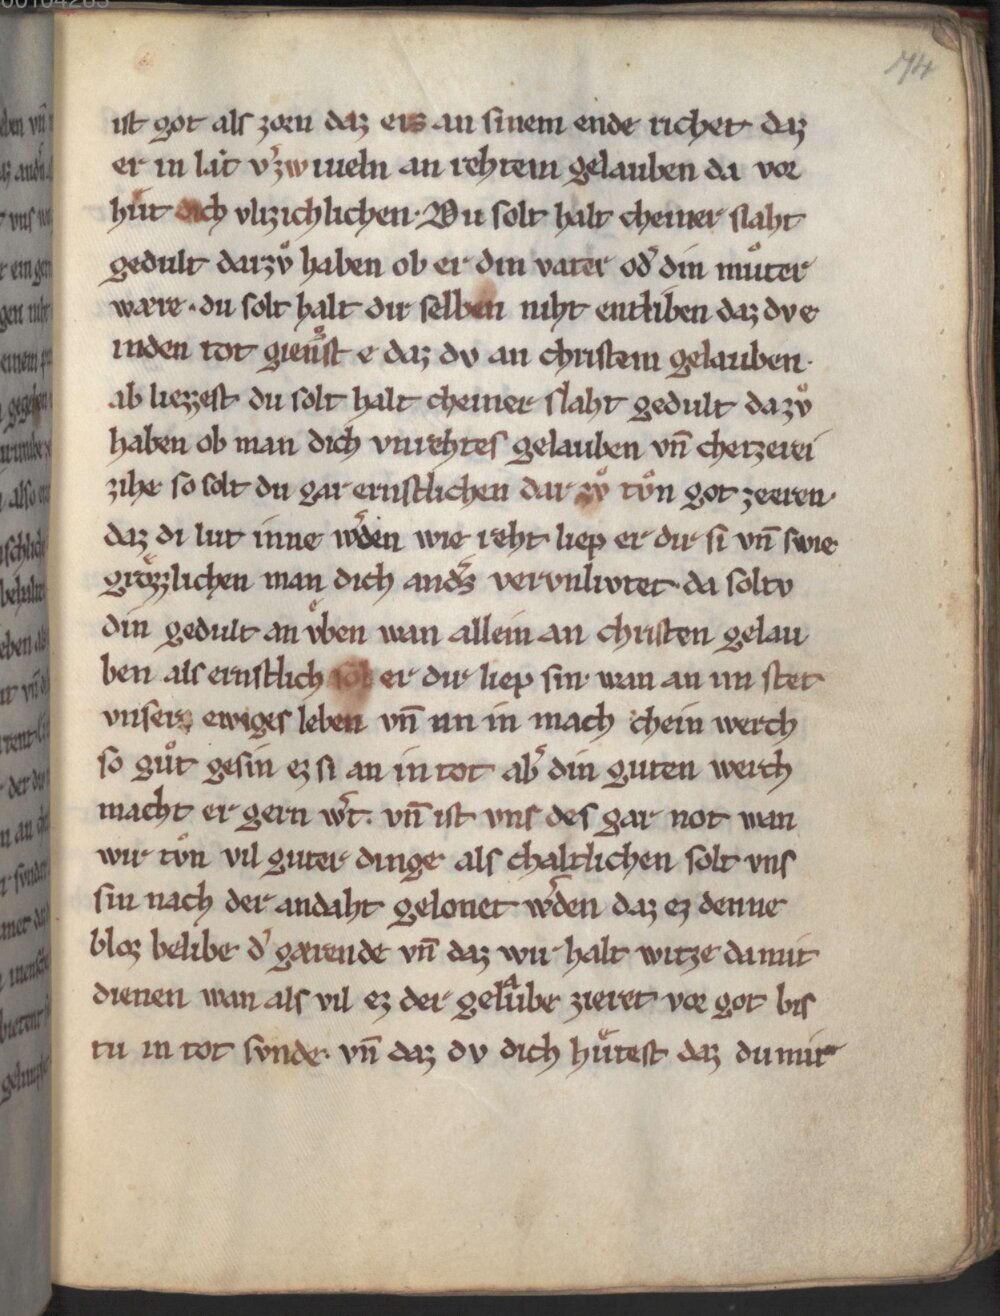 74
ist got als zorn daz erz an sinem ende richet daz
er in lat v̓zwiueln an rehtem gelauben da vor
hůt dich vlizichlichen. Du solt halt cheiner slaht
gedult darzv̊ haben ob er din vater od̓ din mv̊ter
wære. du solt halt dir selben niht entliben daz dv e
inden tot giengst e daz dv an christem gelauben.
ab liezzest du solt halt cheiner slaht gedult dazv̊
haben ob man dich vnrehtes gelauben vn̄ cherzerei
zihe so solt du gar ernstlichen dar zv̊ tv̊n got zeeren.
daz di lut inne w̓den wie reht liep er dir si vn̄ swie
grözzlichen man dich and̓s vervnlivtet. da soltv
din gedult an v̊ben wan allein an christen gelau
ben als ernstlich sol er dir liep sin. wan an im stet
vnser ewiges leben vn̄ im in mach chein werch
so gůt gesin ez si an in tot ab̓ din guten werch
macht er gern w̓t. vn̄ ist vns des gar not wan
wir tv̊n vil guter dinge als chaltlichen solt vns
sin nach der andaht gelonet w̓den daz ez denne
bloz belibe d̓ gærende vn̄ daz wir halt witze damit
dienen wan als vil ez der gelaube zieret vor got bis
tu in tot svnde. vn̄ daz dv dich hůtest daz du mit